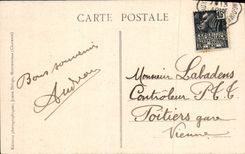 CARTE POSTALE
15
Bons souvenirs
Audran
Monsieur Labadens
Contrôleur P.T.T
Poitiers gare
Vienne